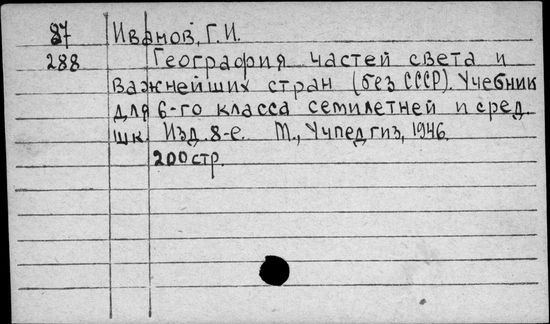 87 Иванов, Г.И.
288 География частей света и
важнейших стран (без СССР). Учебник
для 6-го класса семилетней и сред.
шк. Изд. 8-е. М., Учпедгиз, 1946.
200 стр.